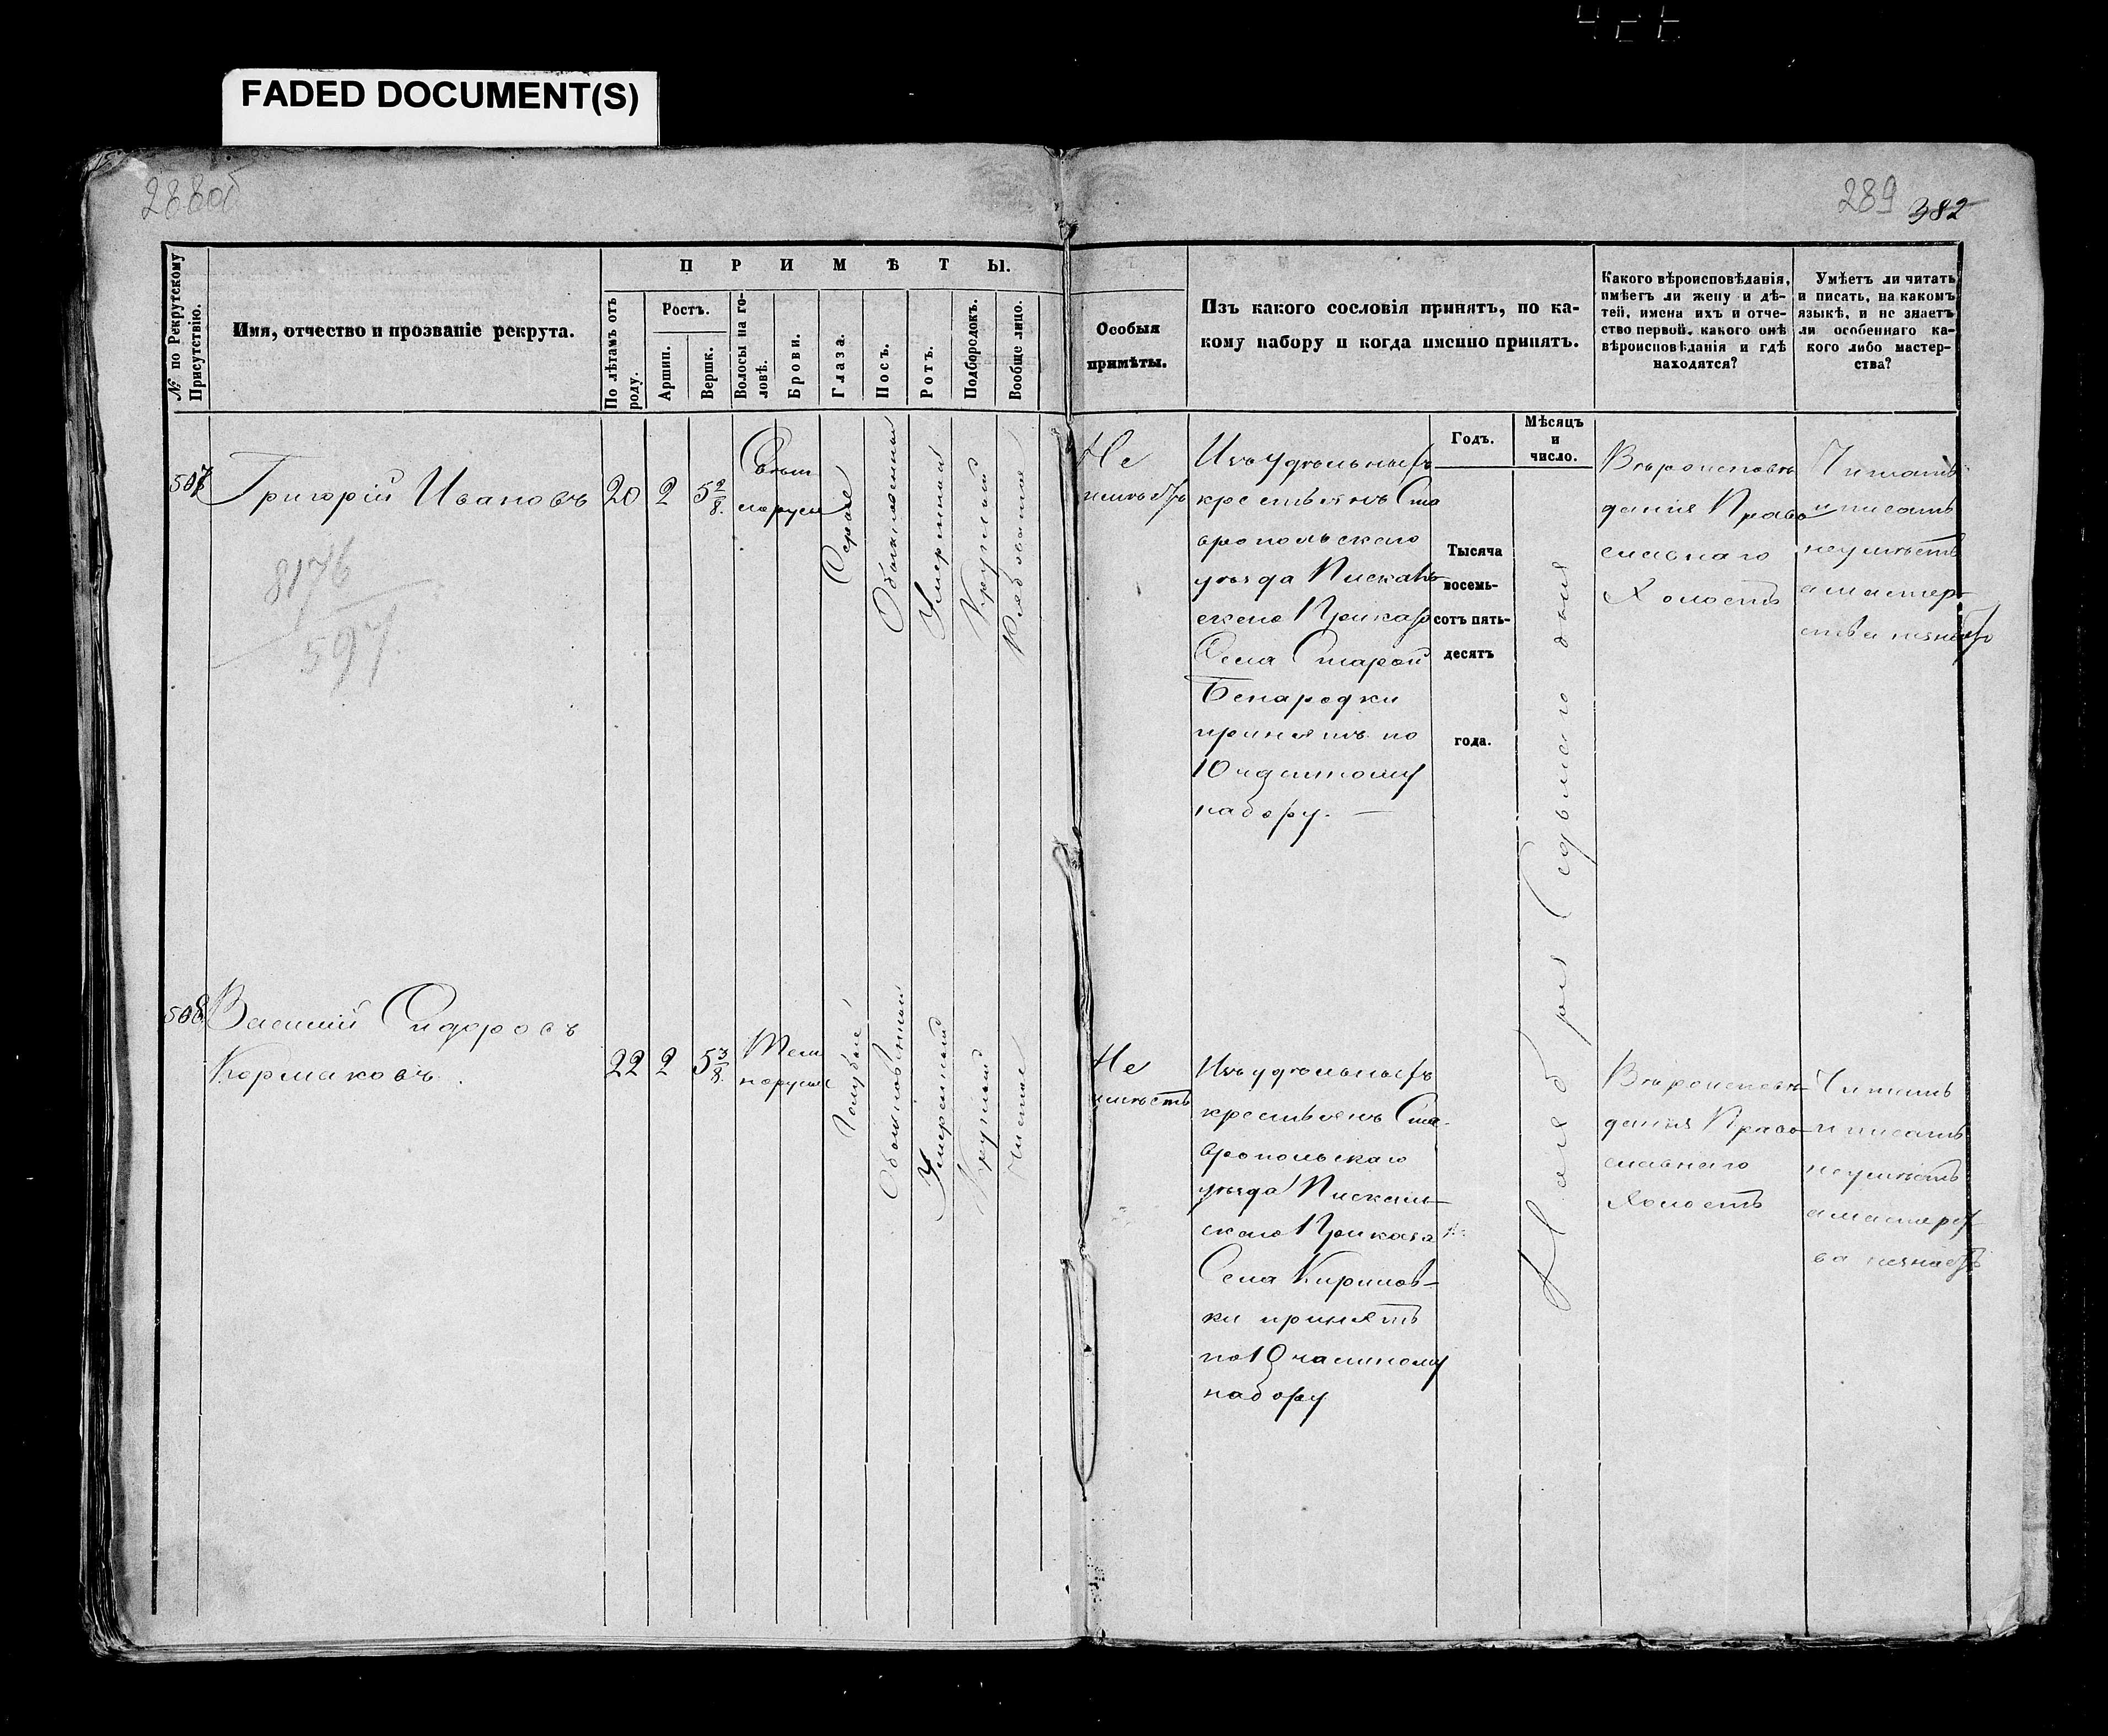 FADED DOCUMENT(S)
288об
289
382
№ по Рекрутскому Присутствію.
Имя, отчество и прозваніе рекрута.
ПРИМѢТЫ.
По лѣтамъ отъ роду.
Ростъ.
Аршин.
Вершк.
Волосы на головѣ.
Брови.
Глаза.
Носъ.
Ротъ.
Подбородокъ.
Вообще лицо.
Особыя
примѣты.
Изъ какого сословія принятъ, по ка-
кому набору и когда именно принятъ.
Какого вѣроисповѣданія,
имѣетъ ли жену и дѣ-
тей, имена ихъ и отче-
ство первой, какого онѣ
вѣроисповѣданія и гдѣ
находятся?
Умѣетъ ли читать
и писать, на какомъ
языкѣ, и не знаетъ
ли особеннаго ка-
кого либо мастер-
ства?
Годъ.
Мѣсяцъ
и
число.
507
Григорій Ивановъ
20
2
5 2/8.
Свѣт
лорусы
Серые
Обыкновенный
Умеренный
Круглый
Рябоватое
Не
имѣетъ
Изъ удѣльныхъ
крестьянъ Ста
вропольскаго
уѣзда Пискалин
скаго Приказа
Села Старой
Бинарадки
принятъ по
10 частному
набору. —
Тысяча
восемь-
сотъ пять-
десятъ
года.
Ноября Седьмаго дня
Вѣроисповѣ
данія Право
славнаго
Холостъ
Читать
и писать
неумѣетъ
а мастер-
ства незнаетъ
8176
597
508
Василий Сидоровъ
Кормаковъ.
22
2
5 3/8.
Тем
норусые
Голубые
Обыкновенный
Умеренный
Круглый
Чистое
Не
имѣетъ
Изъ удѣльныхъ
крестьянъ Ста-
вропольскаго
уѣзда Пискалин-
скаго Приказа
Села Кирилов-
ки принятъ
по 10 частному
набору
Вѣроисповѣ-
данія Право-
славнаго
Холостъ
Читать
и писать
неумѣетъ
а мастерст
ва незнаетъ